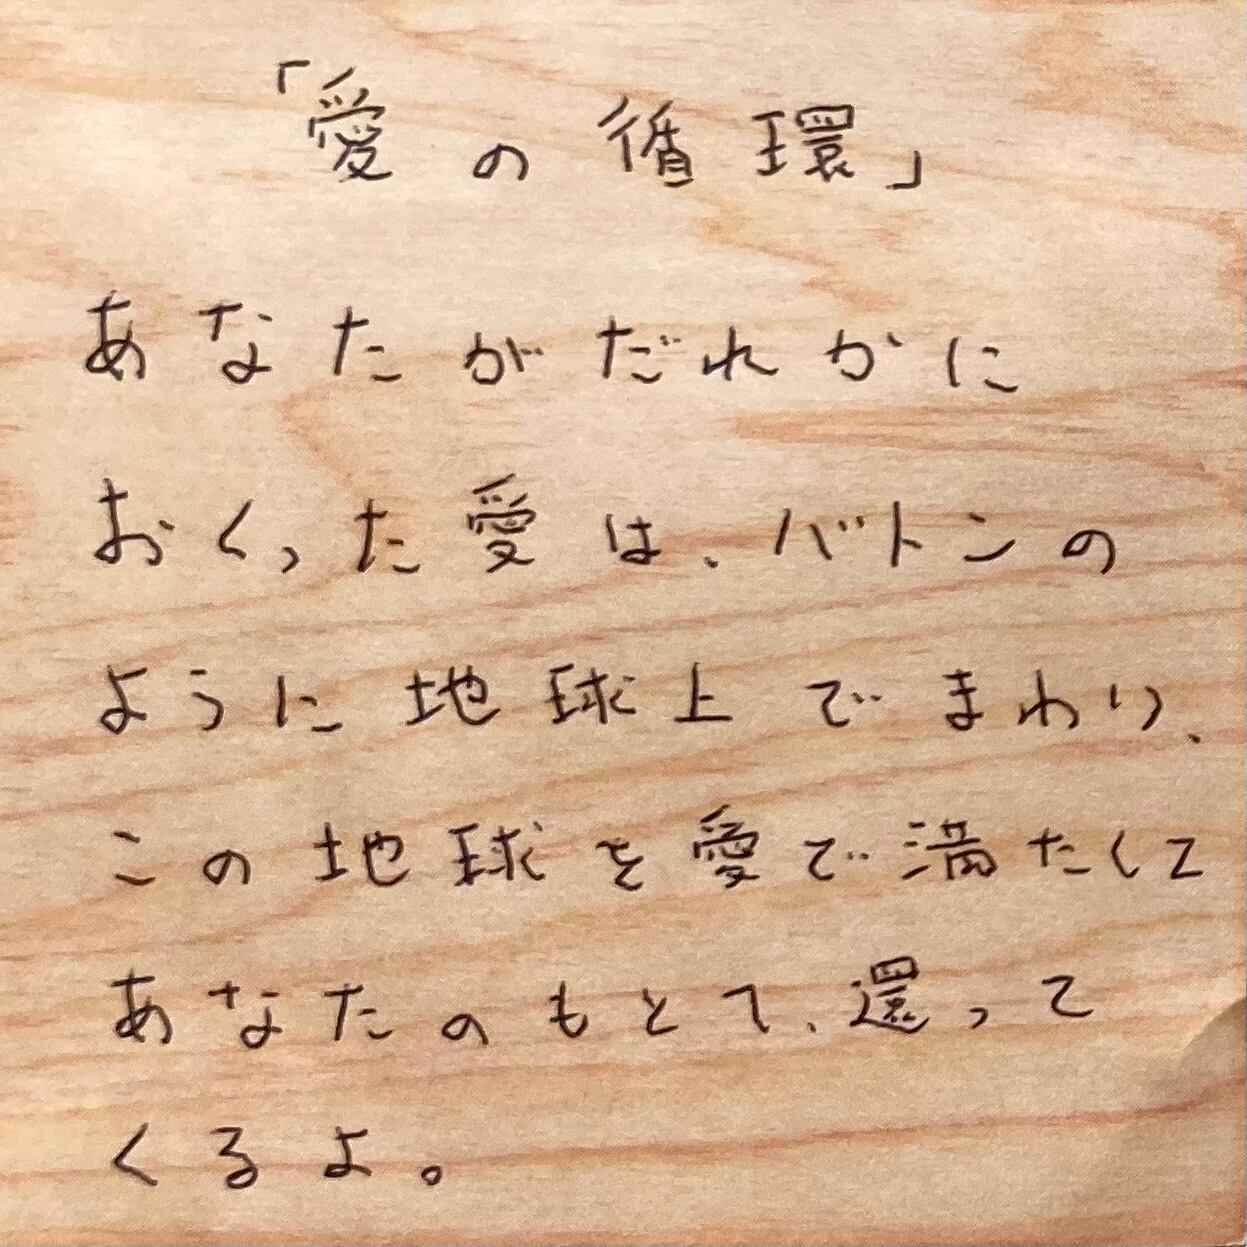 「愛の循環」
あなたがだれかに
おくった愛は、バトンの
ように地球上でまわり、
この地球を愛で満たして
あなたのもとへ、還って
くるよ。